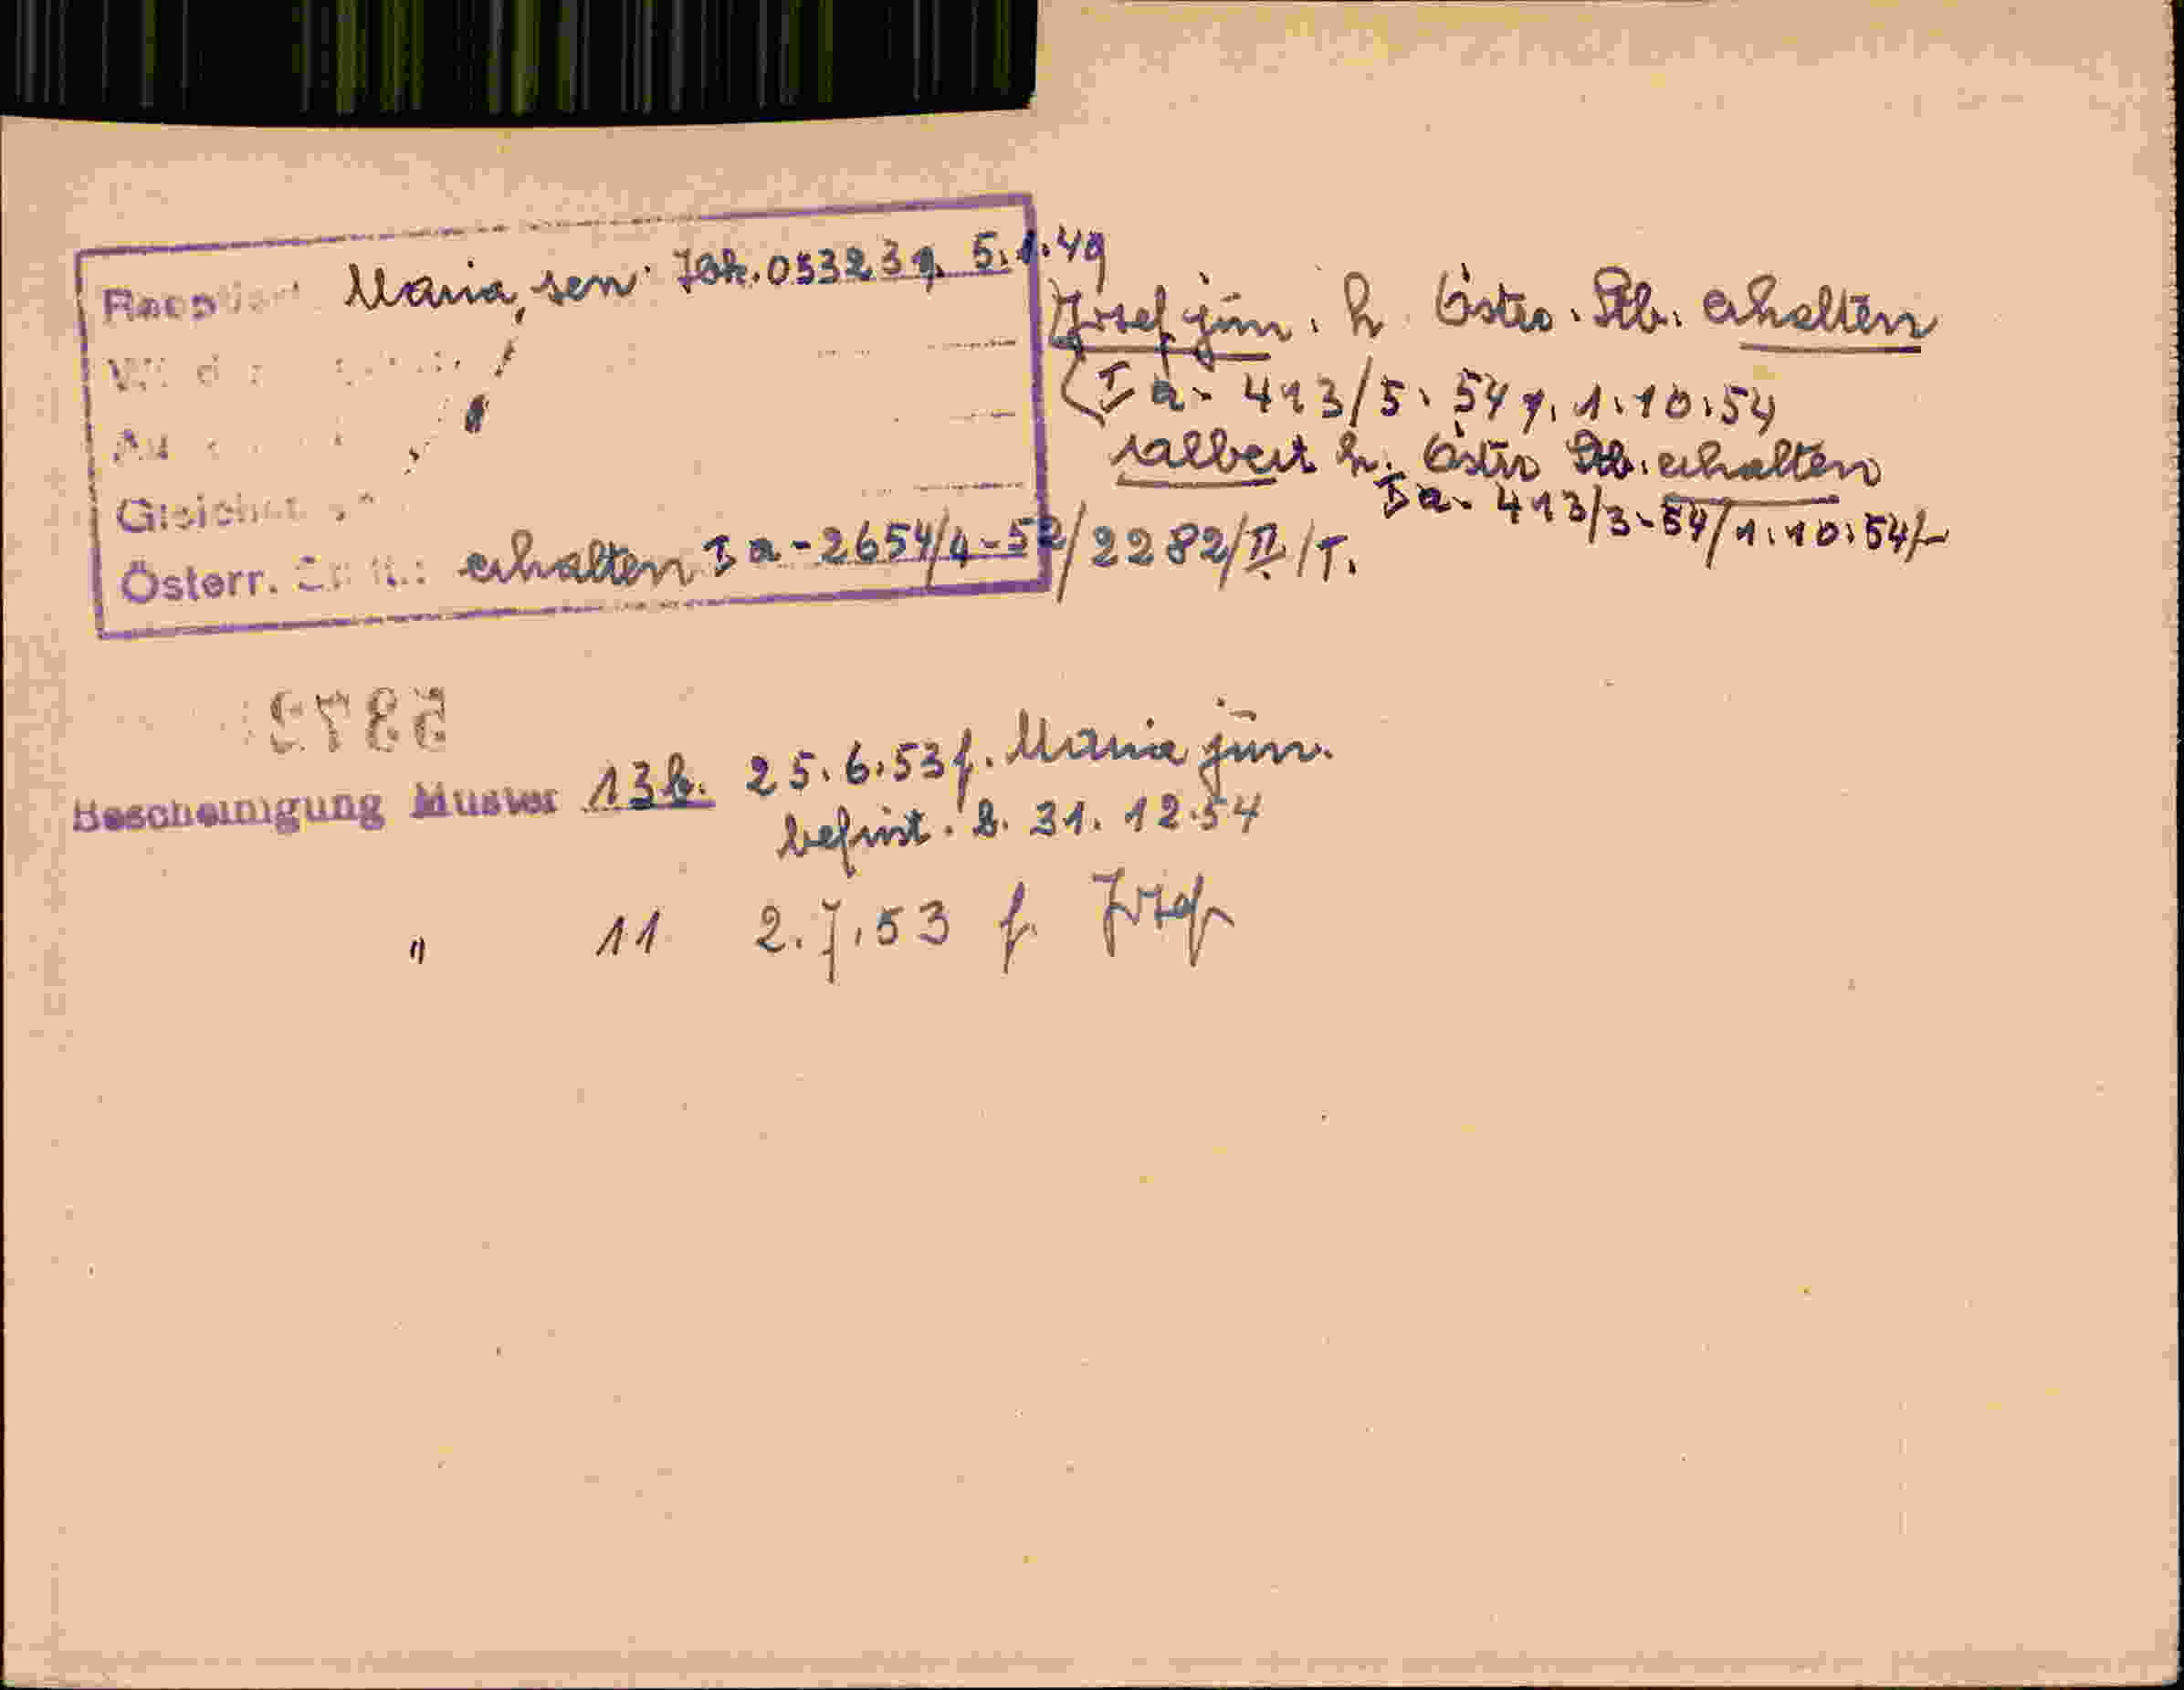 Maria, sen. 053239. 5.1.49
Österr. erhalten I a - 2654/4-52/2282/II/T.
Josef jun. h. Östr. Stb. erhalten
I a - 413/5. 54 v. 1.10.54
Albert h. Östr. Stb. erhalten
I a - 413/3-54/1.10.54/-
5879
Bescheinigung Muster 13b. 25.6.53 f. Maria jun.
befrist. b. 31.12.54
" 11 2.7.53 f. Josef